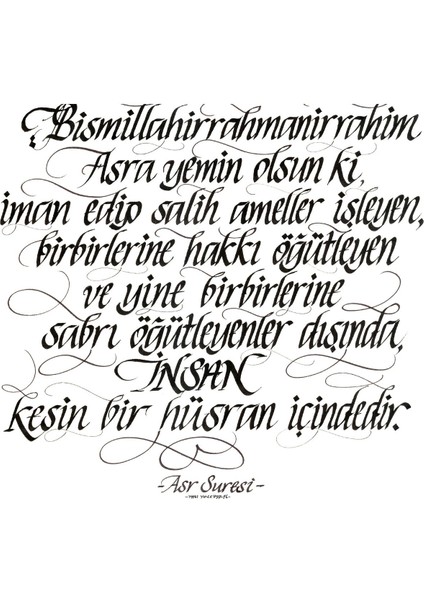 Bismillahirrahmanirrahim
Asra yemin olsun ki,
iman edip salih ameller işleyen,
birbirlerine hakkı öğütleyen
ve yine birbirlerine
sabrı öğütleyenler dışında,
İNSAN
kesin bir hüsran içindedir.
-Asr Suresi-